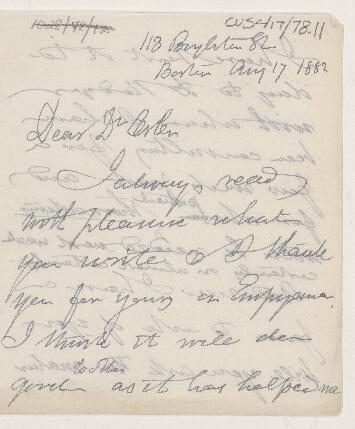 CUS4/17/78.11
118 Boylston St.
Boston Aug 17 1882
Dear Dr
I always read
with pleasure what
you write & I thank
you for yours on Empyema.
I think it will do
to others
good as it has helped me